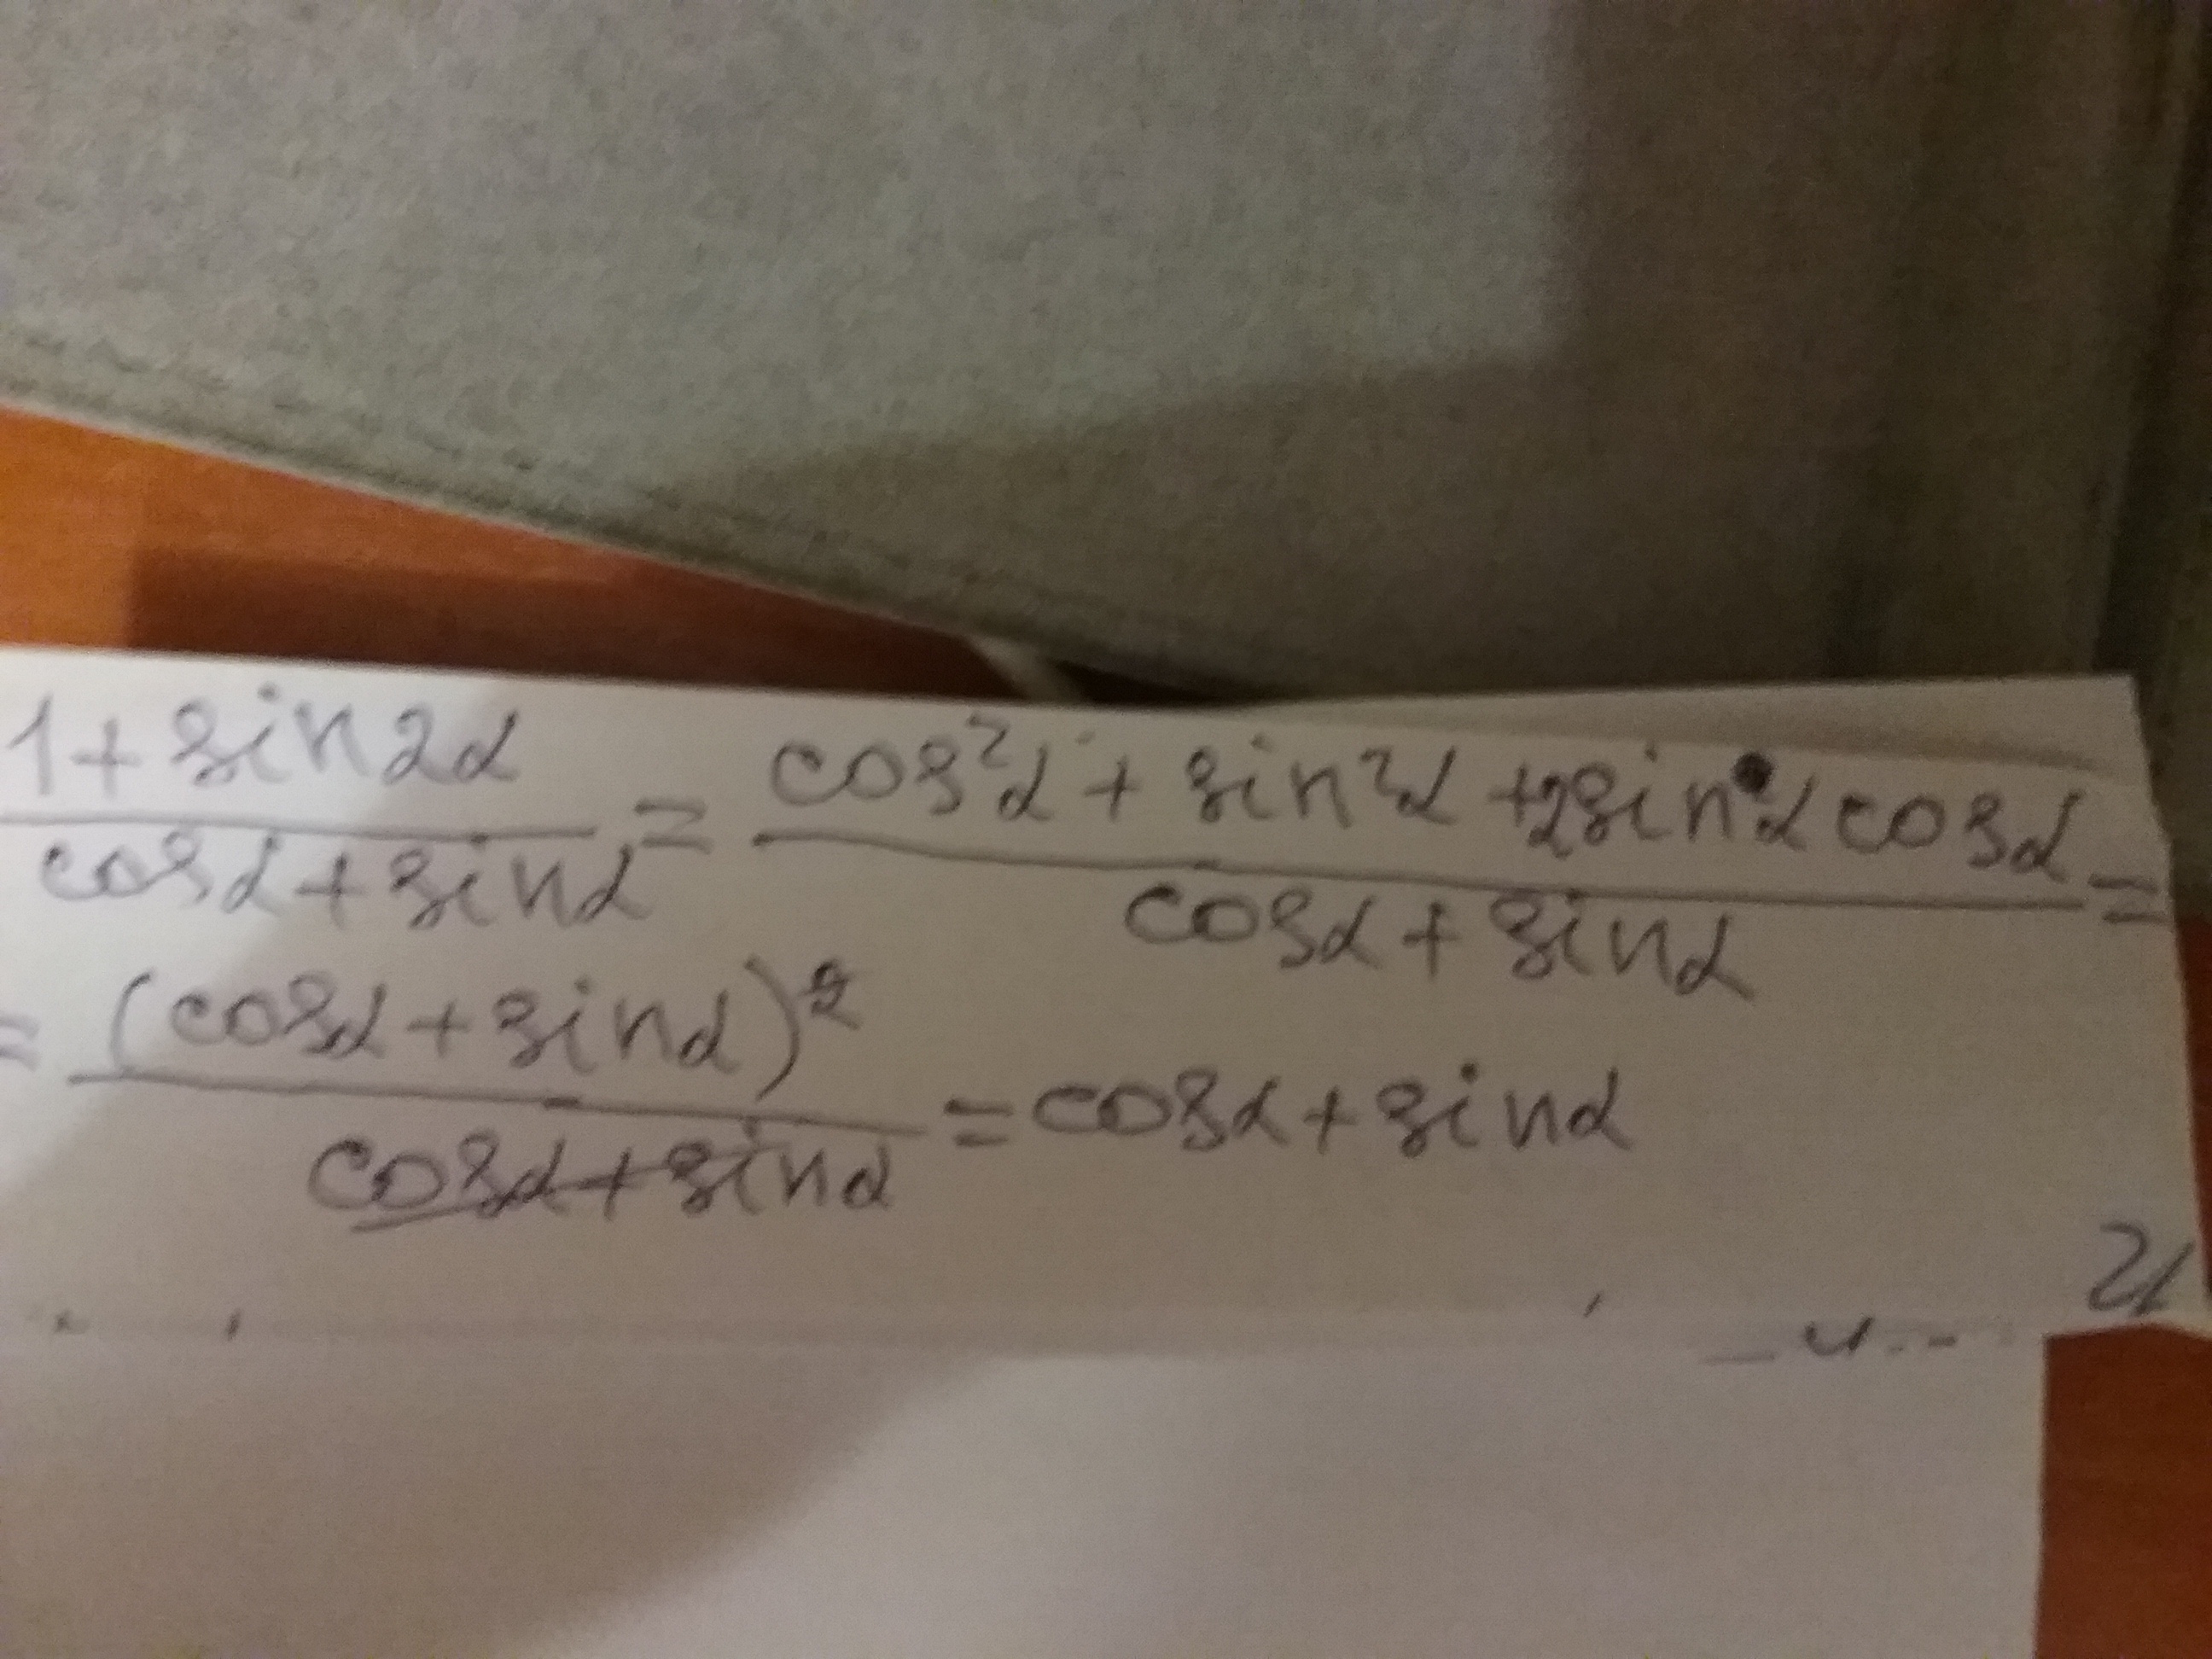 1+sin2α/cosα+sinα = cos²α+sin²α+2sinαcosα/cosα+sinα =
= (cosα+sinα)²/cosα+sinα = cosα+sinα